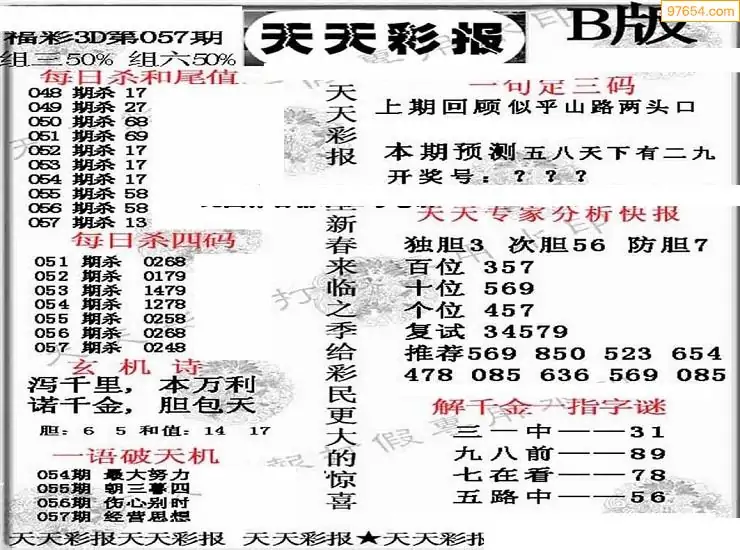 97654.com
福彩3D第057期
天天彩报
B版
组三50% 组六50%
每日杀和尾值
048 期杀 17
049 期杀 27
050 期杀 68
051 期杀 69
052 期杀 17
053 期杀 17
054 期杀 17
055 期杀 58
056 期杀 58
057 期杀 13
每日杀四码
051 期杀 0268
052 期杀 0179
053 期杀 1479
054 期杀 1278
055 期杀 0258
056 期杀 0268
057 期杀 0248
玄机诗
泻千里,本万利
诺千金,胆包天
胆:6 5和值:14 17
一语破天机
054期 最大努力
055期 朝三暮四
056期 伤心别时
057期 经营思想
天天彩报
新春来临之季给彩民更大的惊喜
一句定三码
上期回顾似乎山路两头口
本期预测五八天下有二九
开奖号:???
天天专家分析快报
独胆3 次胆56 防胆7
百位 357
十位 569
个位 457
复试 34579
推荐569 850 523 654
478 085 636 569 085
解千金一指字谜
三一中——31
九八前——89
七在看——78
五路中——56
天天彩报天天彩报 天天彩报★天天彩报